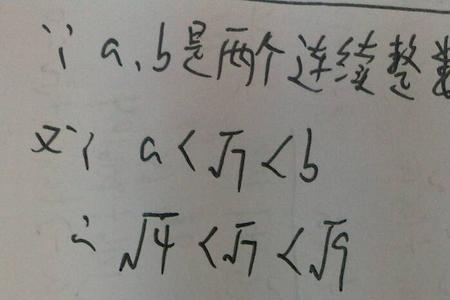 ∵ a、b是两个连续整数
又∵ a < √7 < b
∴ √4 < √7 < √9